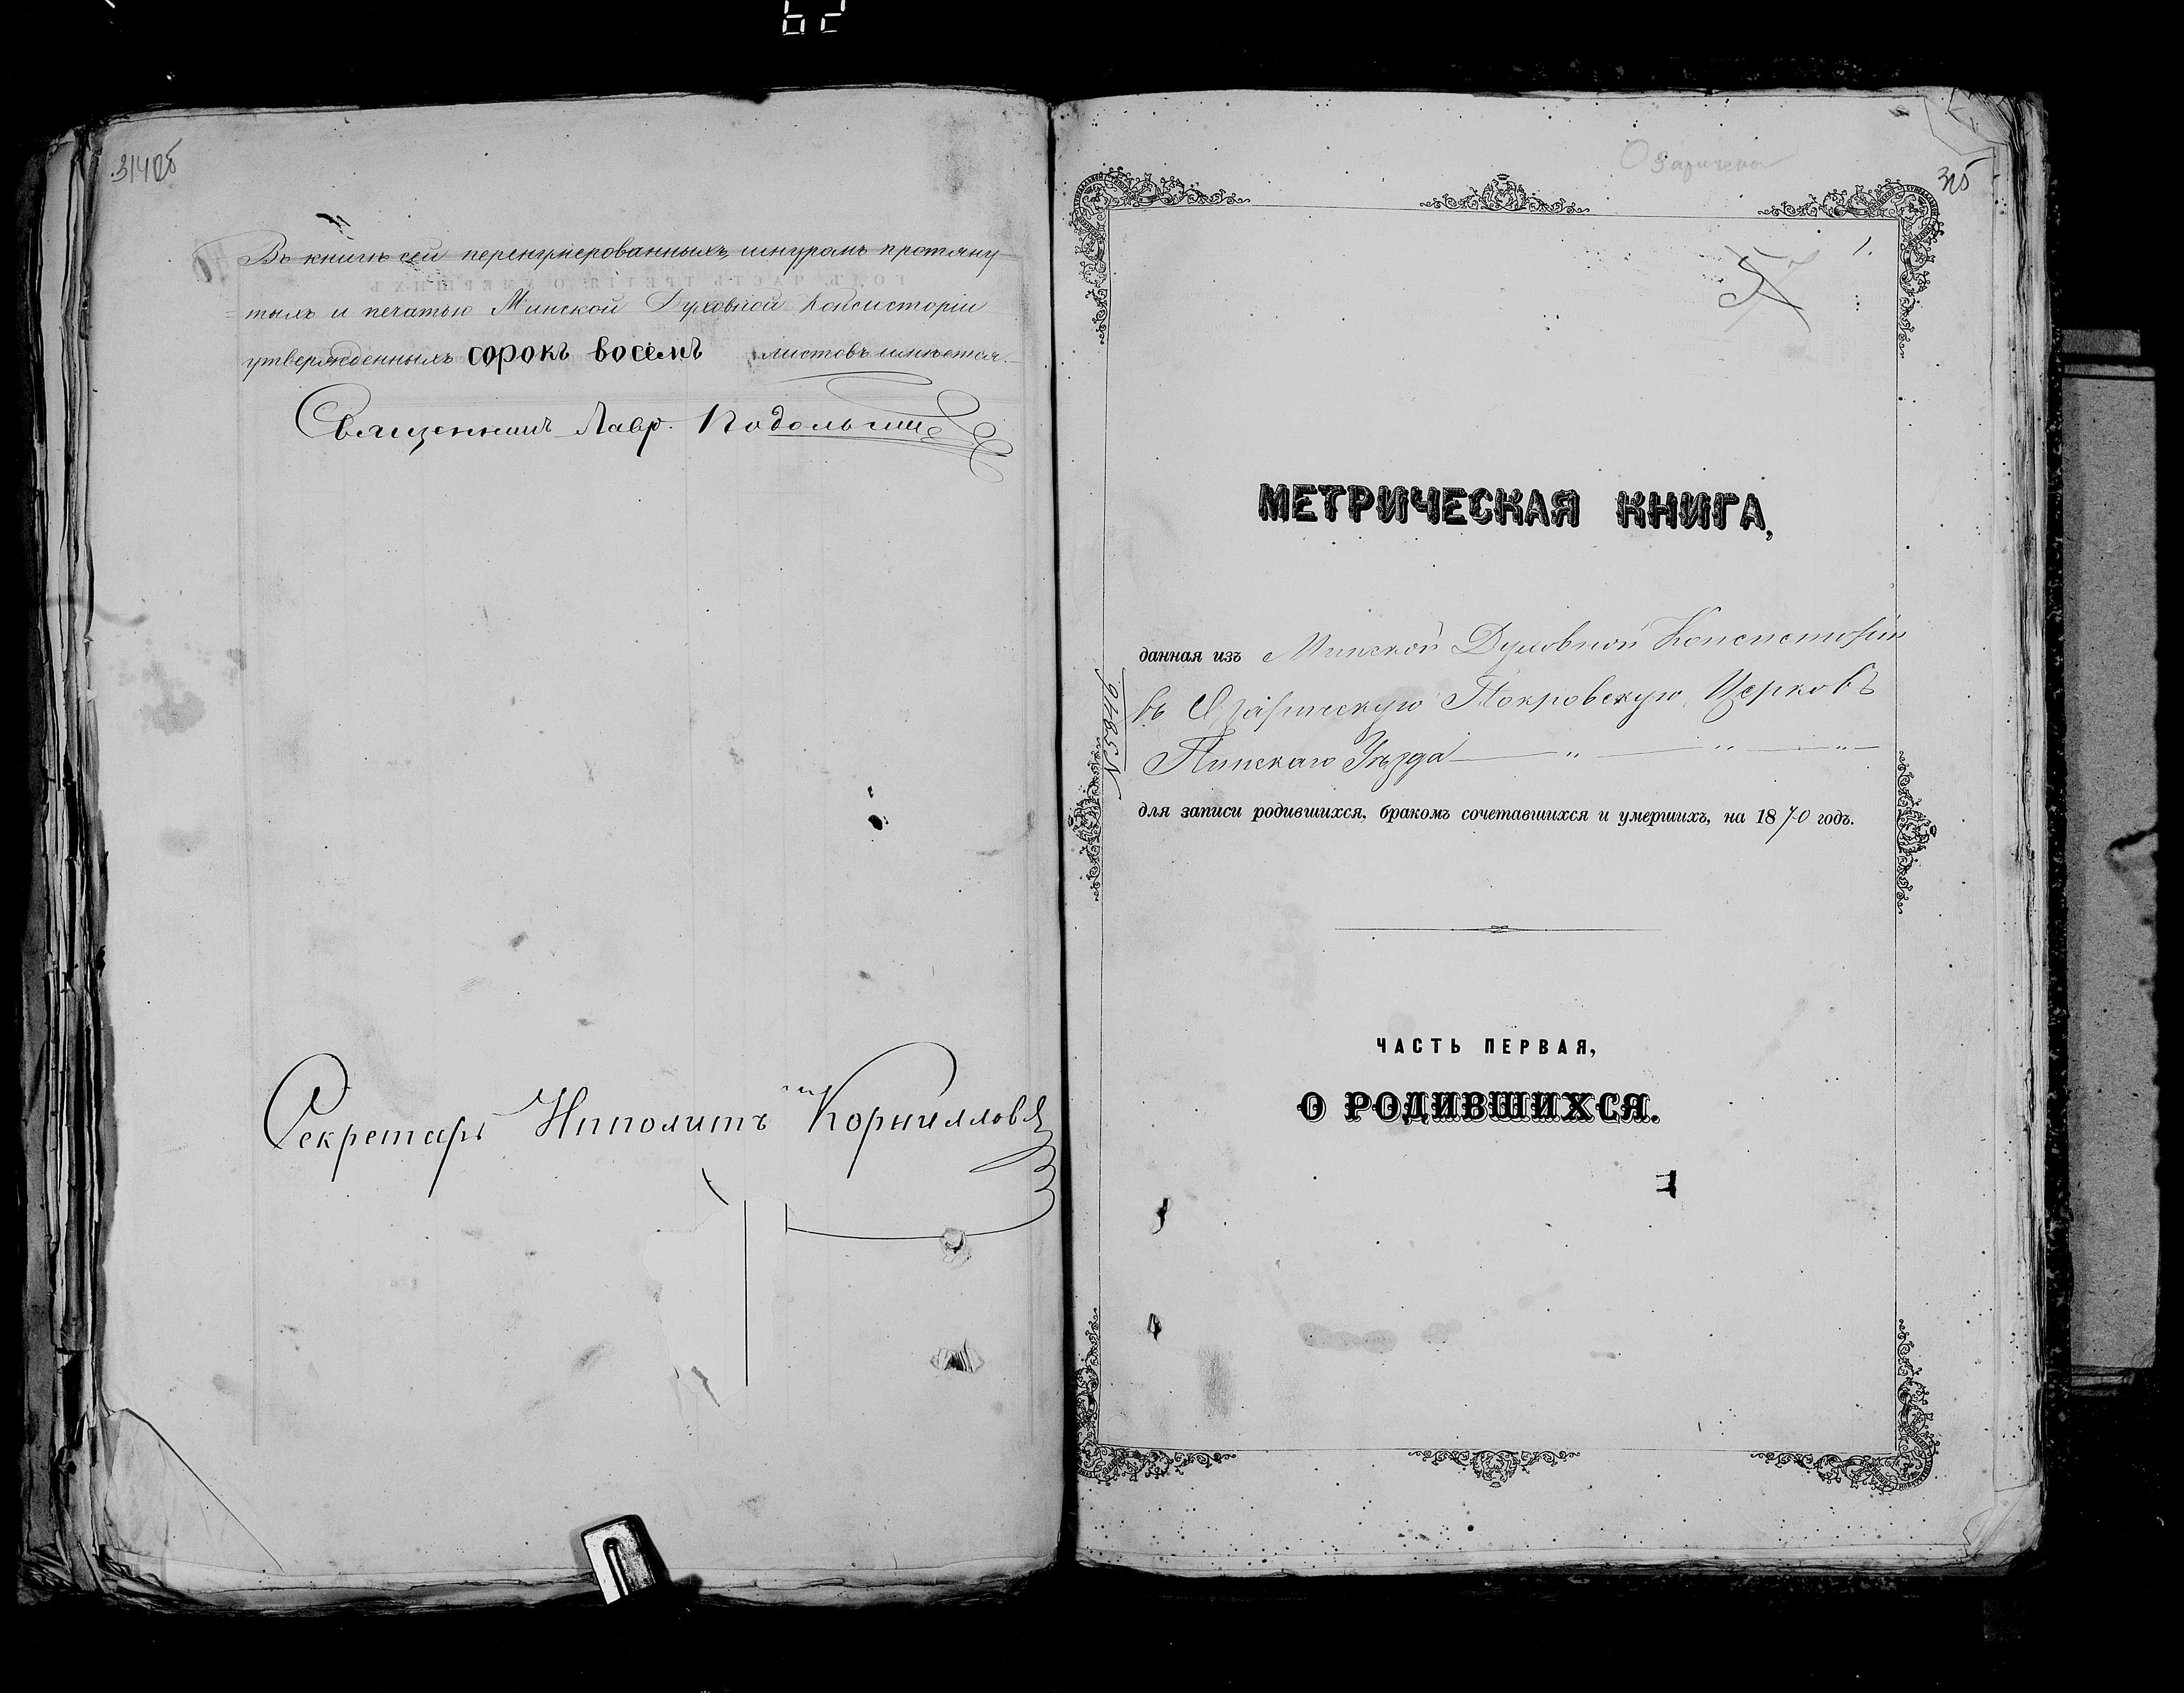 62
314об
Въ книгѣ сей перенумерованныхъ, шнуромъ протяну
тыхъ и печатью Минской Духовной Консисторіи
утвержденныхъ сорокъ восемь листовъ имѣется.
Священникъ Лавр.
Секретарь Ипполитъ Корниловъ
315
1.
57
МЕТРИЧЕСКАЯ КНИГА,
данная изъ Минской Духовной Консисторіи
въ Озаричскую Покровскую Церковь
Пинскаго Уѣзда
№5846
для записи родившихся, бракомъ сочетавшихся и умершихъ, на 1870 годъ.
ЧАСТЬ ПЕРВАЯ,
О РОДИВШИХСЯ.